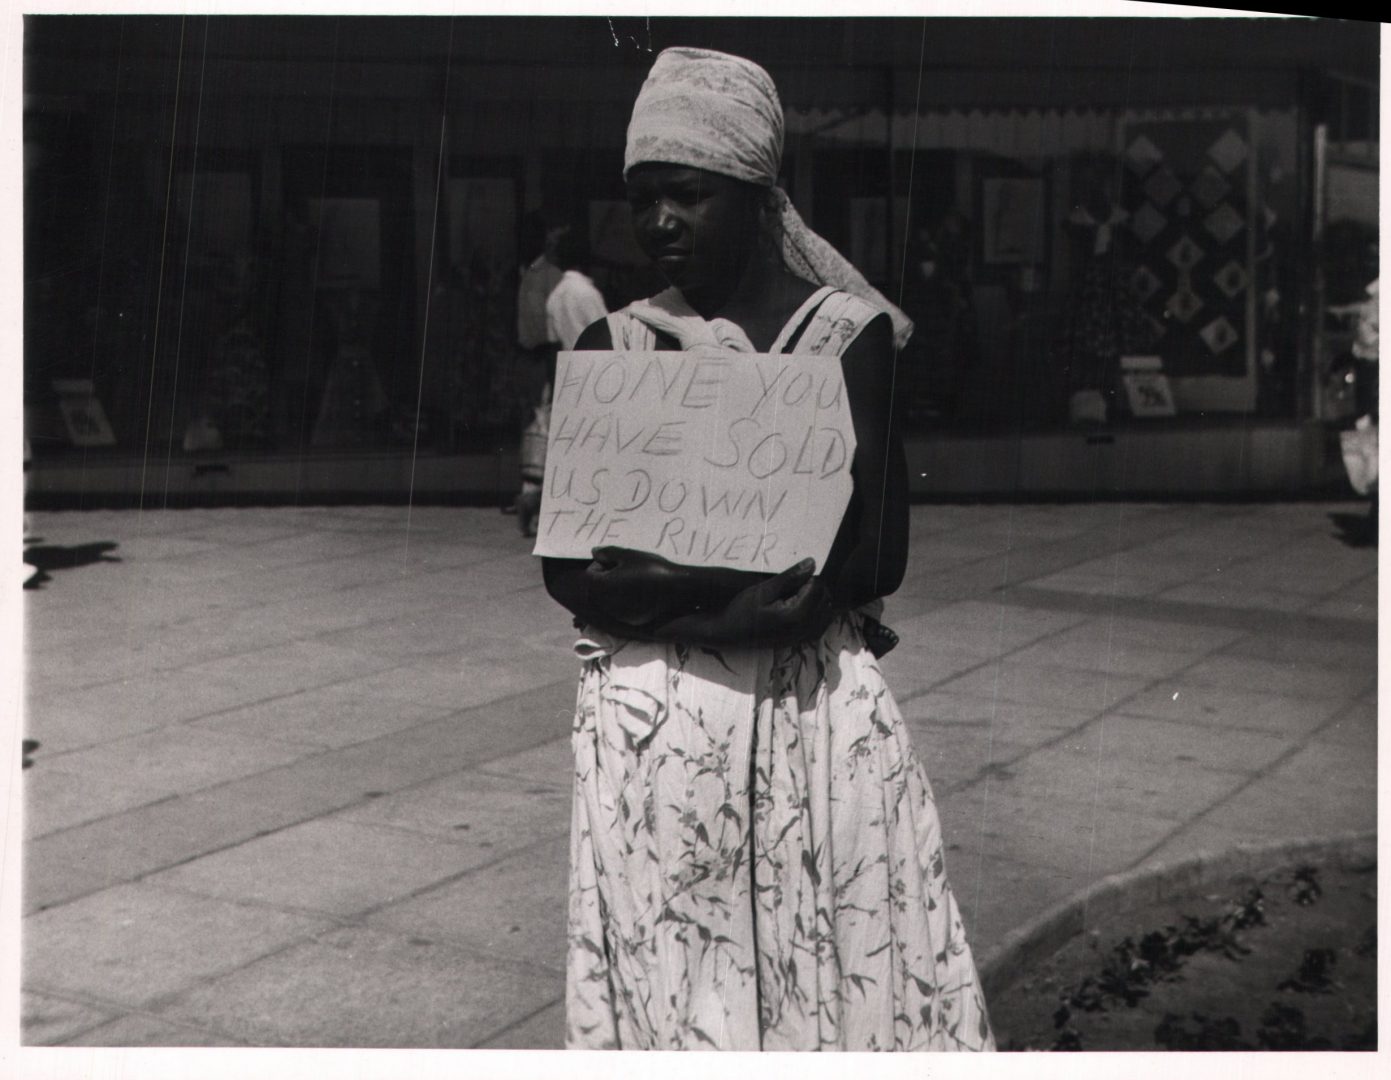 HONE YOU
HAVE SOLD
US DOWN
THE RIVER.